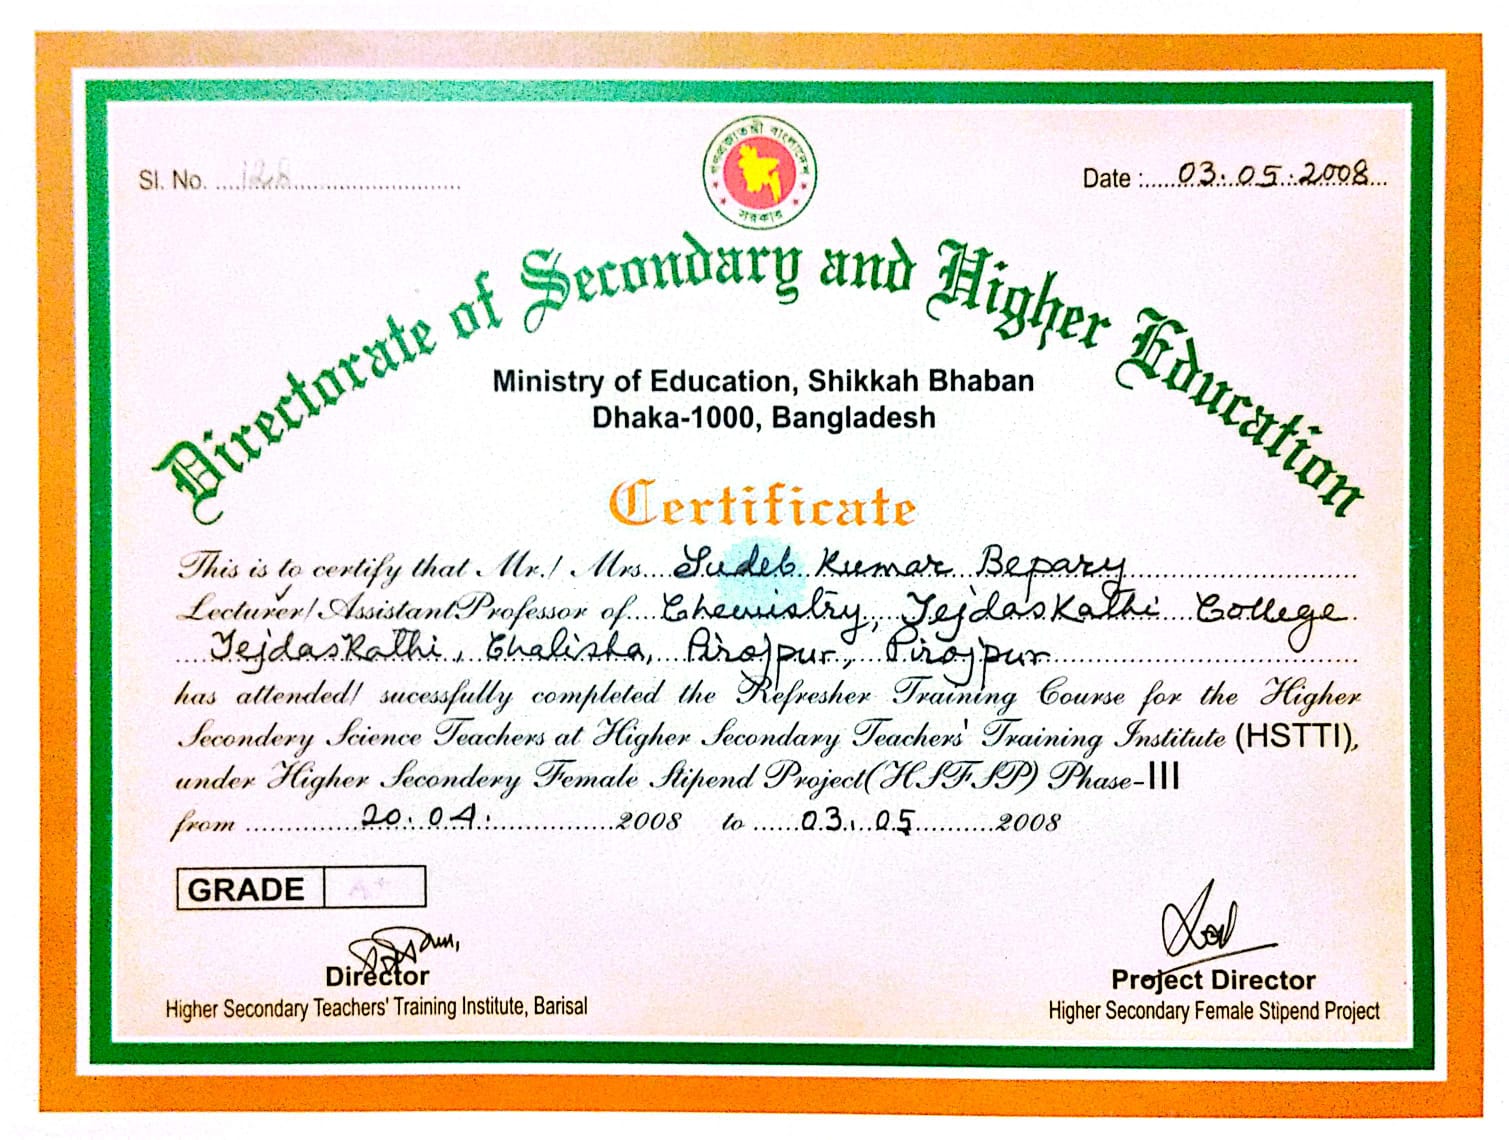 গণপ্রজাতন্ত্রী বাংলাদেশ
সরকার
Sl. No. ....128....
Date :.....03.05.2008...
Directorate of Secondary and Higher Education
Ministry of Education, Shikkah Bhaban
Dhaka-1000, Bangladesh
Certificate
This is to certify that Mr./ Mrs....Sudeb Kumar Bepary....
Lecturer/Assistant Professor of....Chemistry, Tejdaskathi College
....Tejdaskathi, Chalisha, Pirojpur, Pirojpur....
has attended/ sucessfully completed the Refresher Training Course for the Higher
Secondery Science Teachers at Higher Secondary Teachers' Training Institute (HSTTI),
under Higher Secondery Female Stipend Project(HSFSP) Phase-III
from ....20.04.....2008 to ....03.05....2008
GRADE A+
Director
Higher Secondary Teachers' Training Institute, Barisal
Project Director
Higher Secondary Female Stipend Project